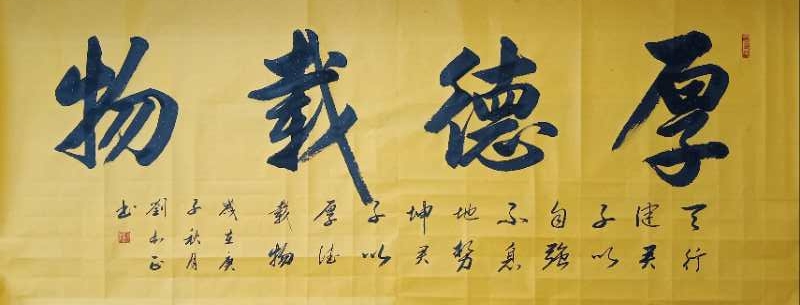 厚德載物
天行
健君
子以
自強
不息
地勢
坤君
子以
厚德
載物
歲在庚
子秋月
劉
正
书